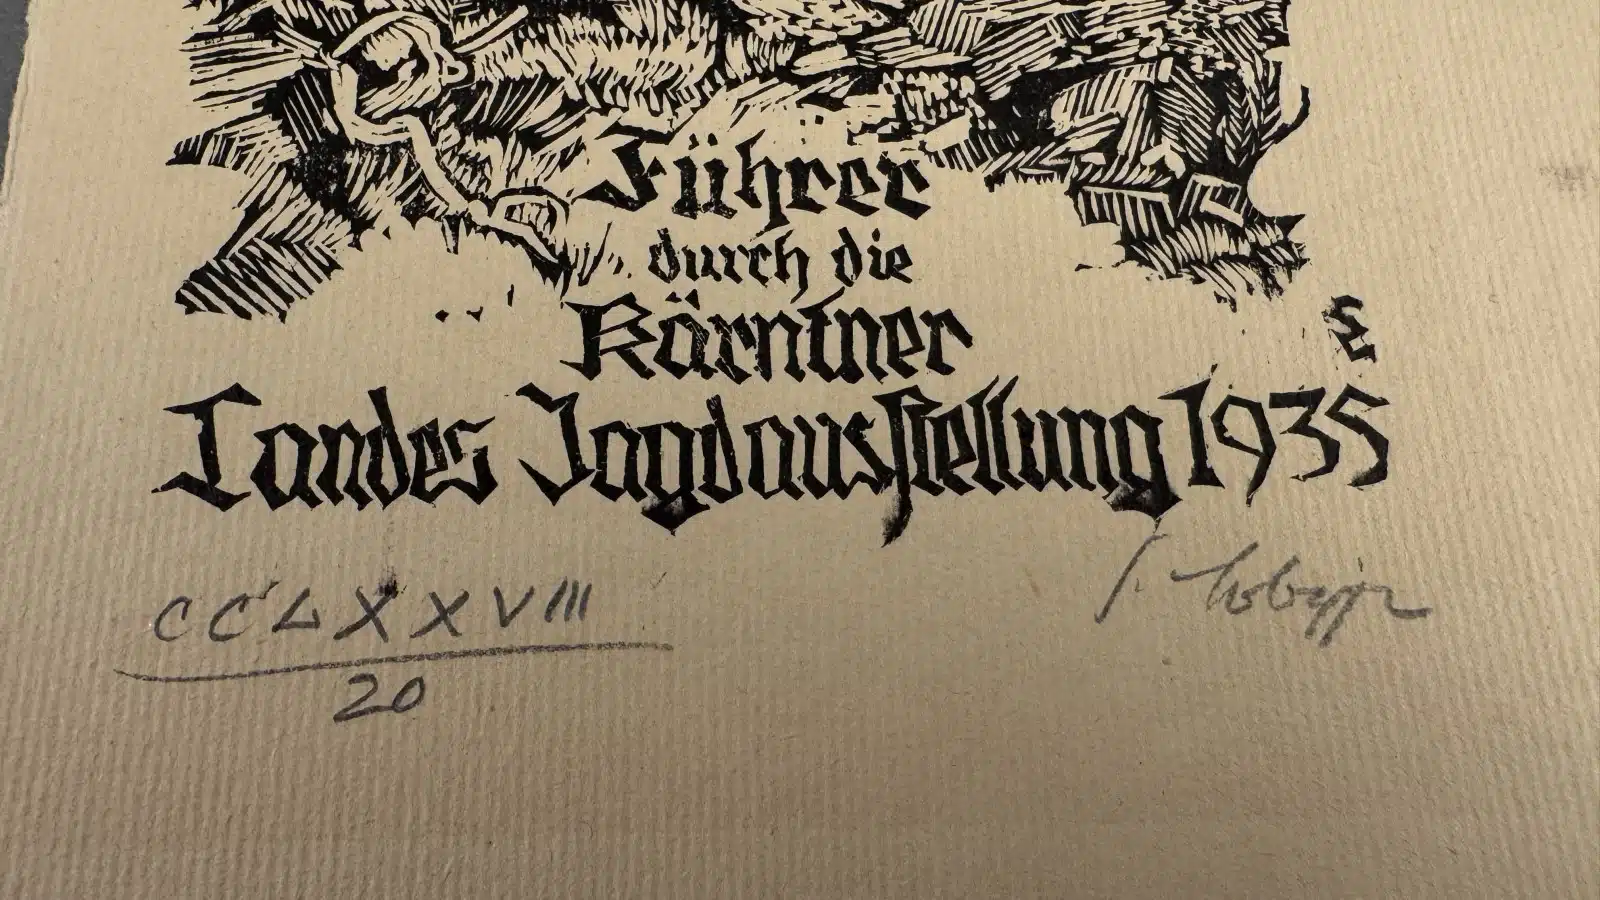 Führer
durch die
Kärntner
Landes Jagdausstellung 1935
CCLXXVIII
20